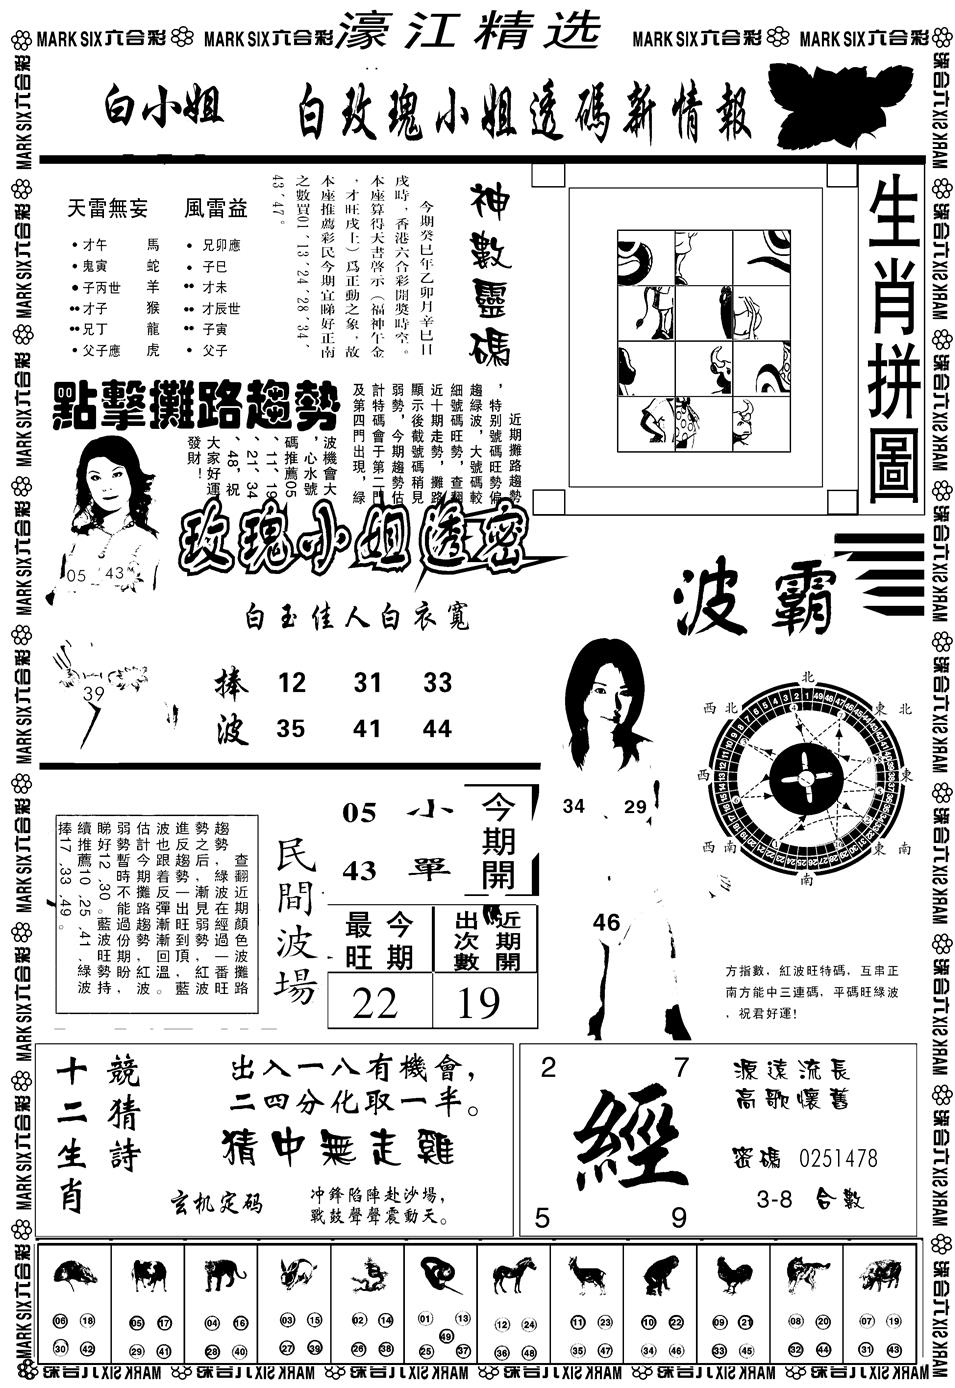 MARK SIX六合彩 MARK SIX六合彩 濠江精选 MARK SIX六合彩 MARK SIX六合彩
白小姐 白玫瑰小姐透碼新情報
天雷無妄 風雷益
才午 馬 兄卯應
鬼寅 蛇 子巳
子丙世 羊 才未
才子 猴 才辰世
兄丁 龍 子寅
父子應 虎 父子
神數靈碼
今期癸巳年乙卯月辛巳日
戌時，香港六合彩開獎時空。
本座算得天書啓示（福神午金
，才旺戌土）爲正動之象，故
本座推薦彩民今期宜睇好正南
之數買01、13、24、28、34、
43、47。
生肖拼圖
點擊攤路趨勢
近期攤路趨勢
，特別號碼旺勢偏
趨綠波，大號碼較
細號碼旺勢，查翻
近十期走勢，攤路
顯示後截號碼稍見
弱勢，今期趨勢估
計特碼會于第二門
及第四門出現，綠
波機會大
，心水號
碼推薦05
、11、19
、21、34
、48，祝
大家好運
發財！
05 43
39
玫瑰小姐透密
白玉佳人白衣寬
捧波
12 31 33
35 41 44
波霸
34 29
46
北
西北 東北
西 東
西南 東南
南
方指數，紅波旺特碼，互串正
南方能中三連碼，平碼旺綠波
，祝君好運！
查翻近期顏色波攤路
趨勢，綠波在經過一番旺
勢之后，漸見弱勢，紅波
進反趨勢一出旺到頂，藍
波也跟着反彈漸漸回溫。
估計今期攤路趨勢紅波
弱勢暫時不能過份期盼，
睇好12、30。藍波旺勢持
續推薦10、25、41，綠波
捧17、33、49。
民間波場
05 小
43 單
今期開
今期最旺
近期開出次數
22 19
競猜詩
十二生肖
出入一八有機會，
二四分化取一半。
猜中無走雞
玄机定码
冲鋒陷陣赴沙場，
戰鼓聲聲震動天。
2 7
經
5 9
源遠流長
高歌懷舊
密碼 0251478
3-8 合數
06 18 05 17 04 16 03 15 02 14 01 13 12 24 11 23 10 22 09 21 08 20 07 19
49
30 42 29 41 28 40 27 39 26 38 25 37 36 48 35 47 34 46 33 45 32 44 31 43